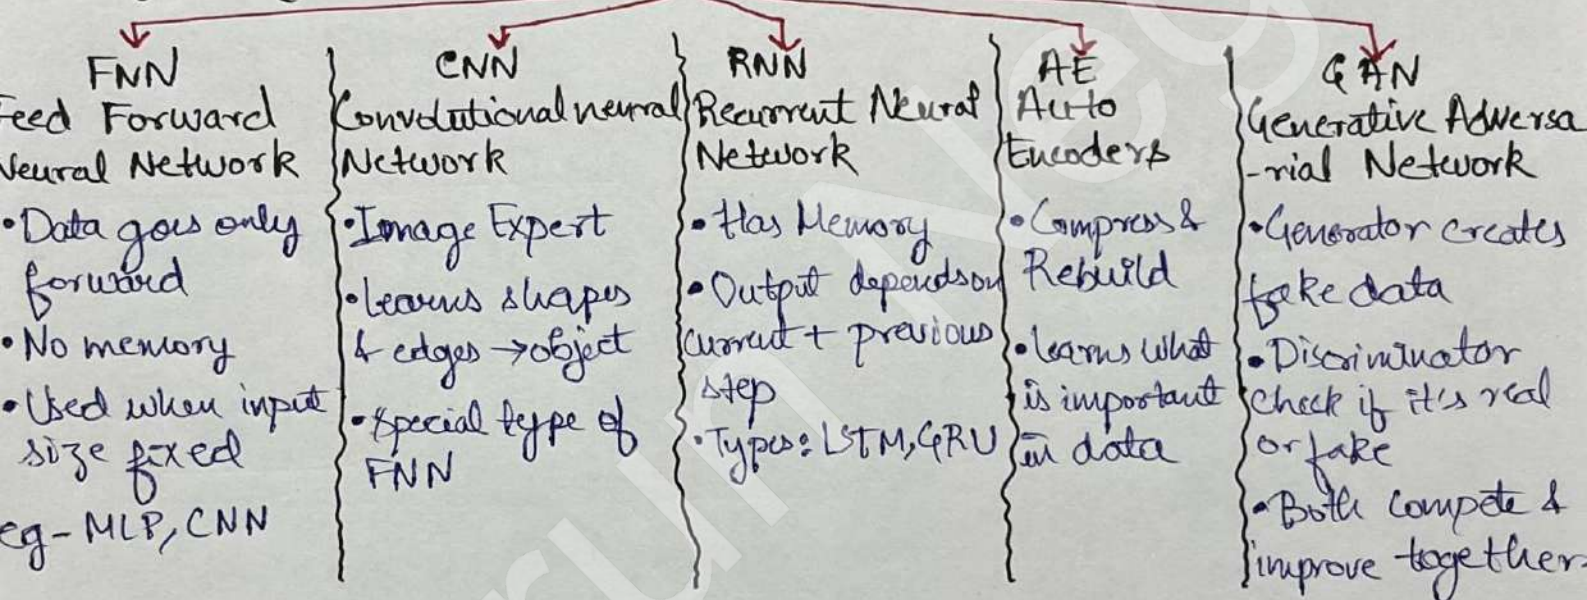 FNN
Feed Forward
Neural Network
• Data goes only
forward
• No memory
• Used when input
size fixed
eg - MLP, CNN
CNN
Convolutional neural
Network
• Image Expert
• learns shapes
& edges → object
• Special type of
FNN
RNN
Recurrent Neural
Network
• Has Memory
• Output depends on
current + previous
step
• Types: LSTM, GRU
AE
Auto
Encoders
• Compress &
Rebuild
• learns what
is important
in data
GAN
Generative Adversa
-rial Network
• Generator creates
fake data
• Discriminator
check if it's real
or fake
• Both compete &
improve together.